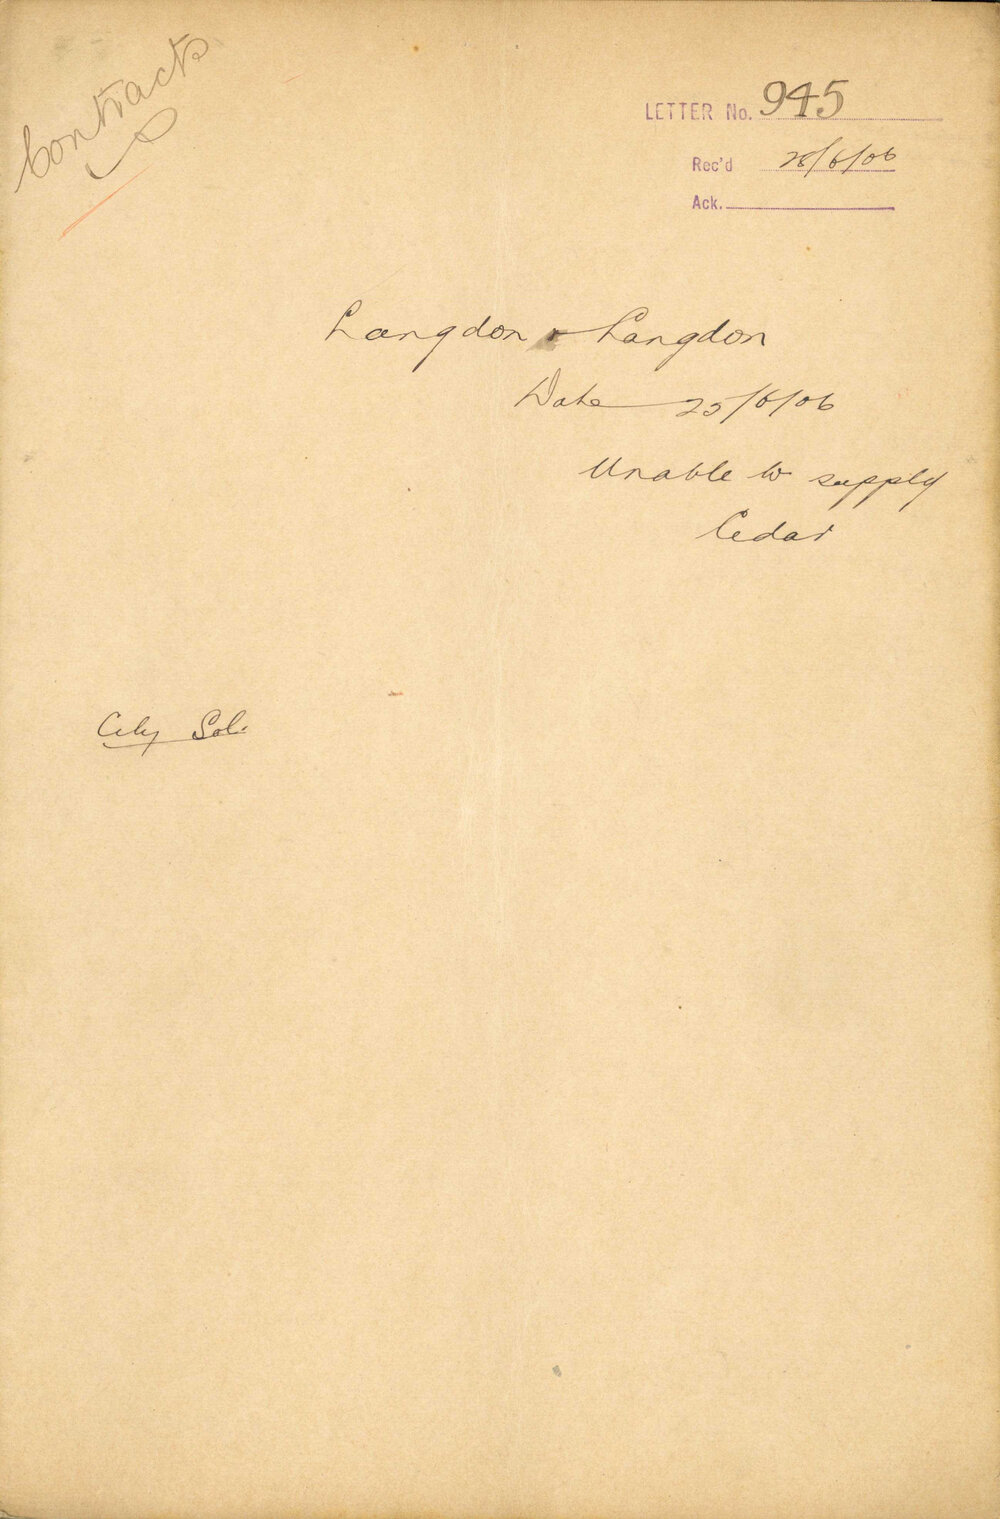 Contracts
LETTER No. 945
Rec'd 28/6/06
Ack.
Langdon & Langdon
Date 25/6/06
Unable to supply
Cedar
City Sol.